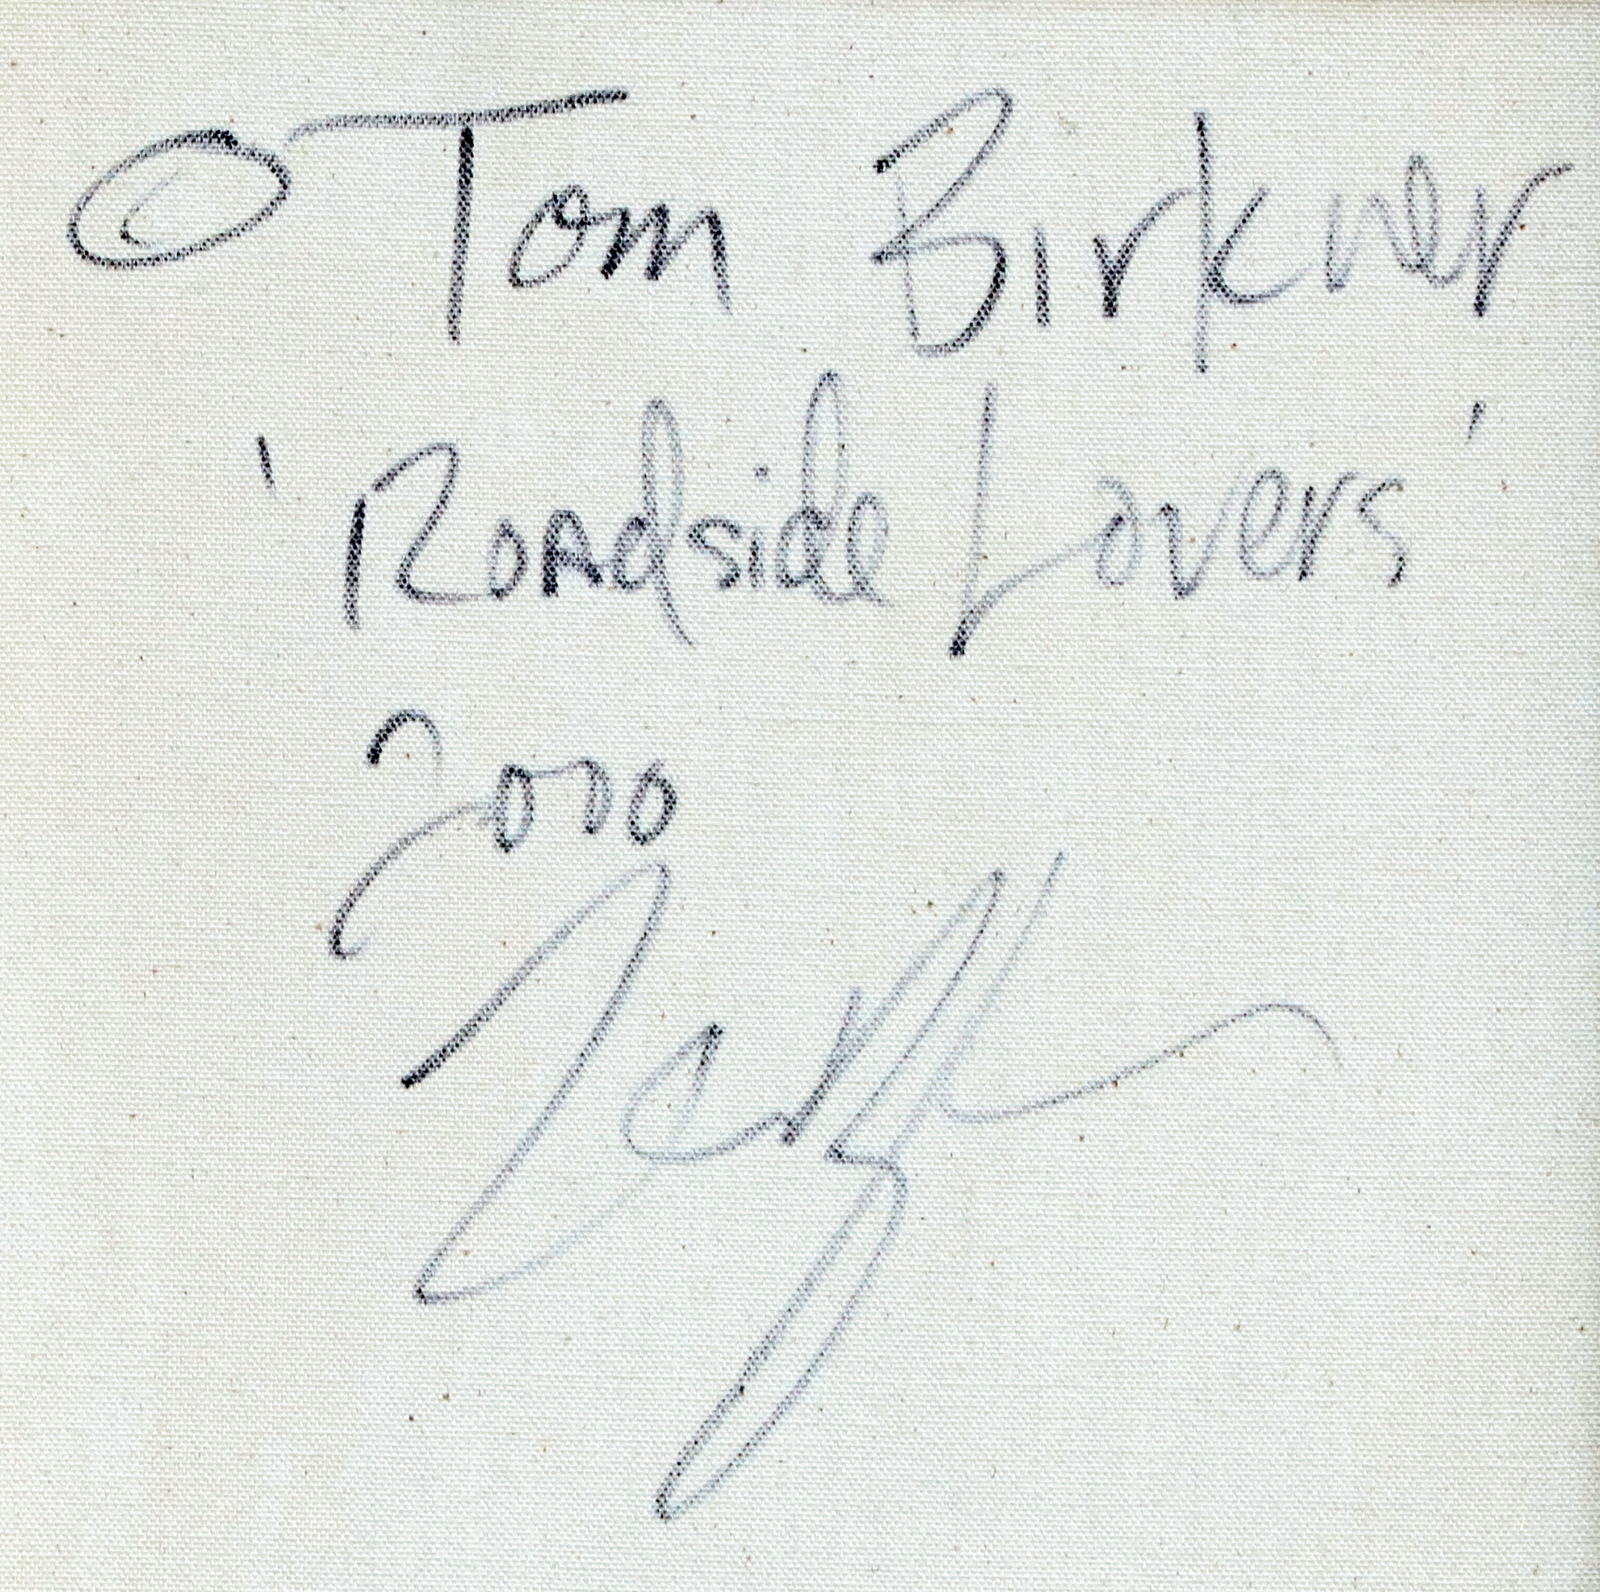 © Tom Birkner
'Roadside Lovers'
2000